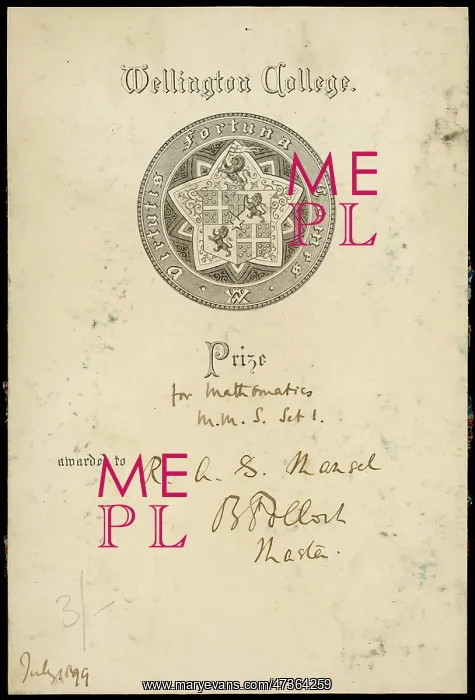 Wellington College.
Virtutis Fortuna Comes
W
ME
PL
Prize
for Mathematics
M.M. S. Set 1.
awarded to R. A. S. Mansel
ME
PL
B Pollock
Master.
3/-
July 1899
www.maryevans.com/47364259